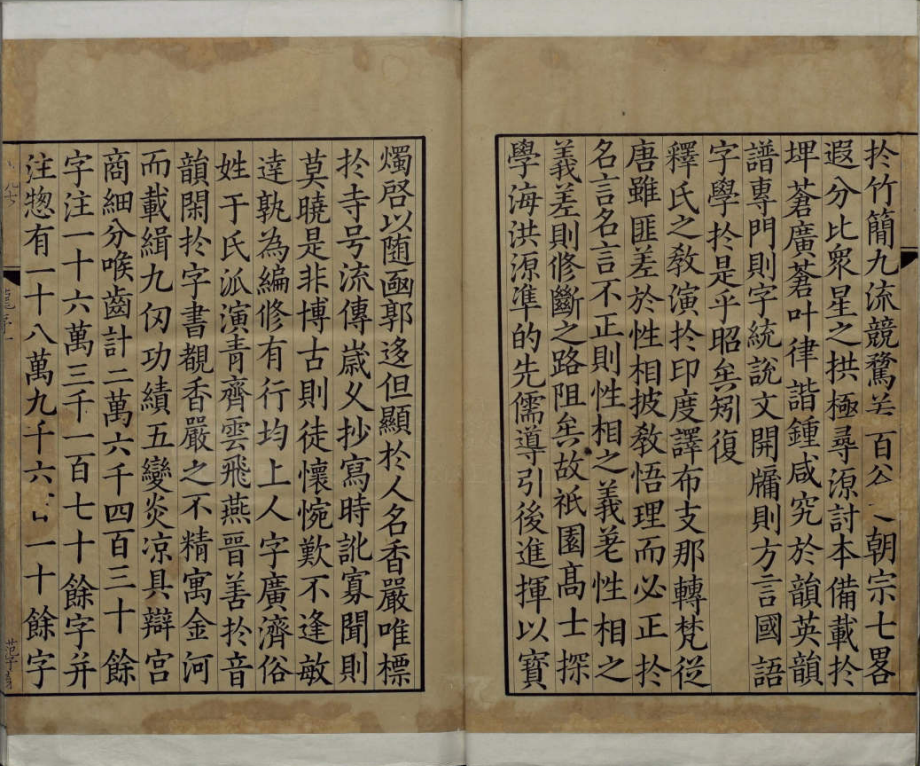 扵竹簡九流競騖𠔥百谷之朝宗七畧
遐分比衆星之拱極尋源討本備載扵
埤蒼廣蒼叶律諧鍾咸究於韻英韻
譜專門則字統說文開牖則方言國語
字學扵是乎昭矣矧復
釋氏之敎演扵印度譯布支那轉梵従
唐雖匪差於性相披敎悟理而必正扵
名言名言不正則性相之義差性相之
義差則修斷之路阻矣故祇園髙士探
學海洪源準的先儒導引後進揮以寶
燭啓以随函郭迻但顯扵人名香嚴唯標
扵寺号流傳歳久抄寫時訛寡聞則
莫曉是非博古則徒懷惋歎不逢敏
達孰為編修有行均上人字廣濟俗
姓于氏派演青齊雲飛燕晉善扵音
韻閑扵字書覩香嚴之不精寓金河
而載緝九仞功績五變炎凉具辯宮
商細分喉齒計二萬六千四百三十餘
字注一十六萬三千一百七十餘字并
注惣有一十八萬九千六一十餘字